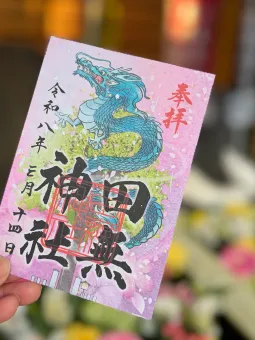 奉拝
田無
神社
令和八年三月十四日